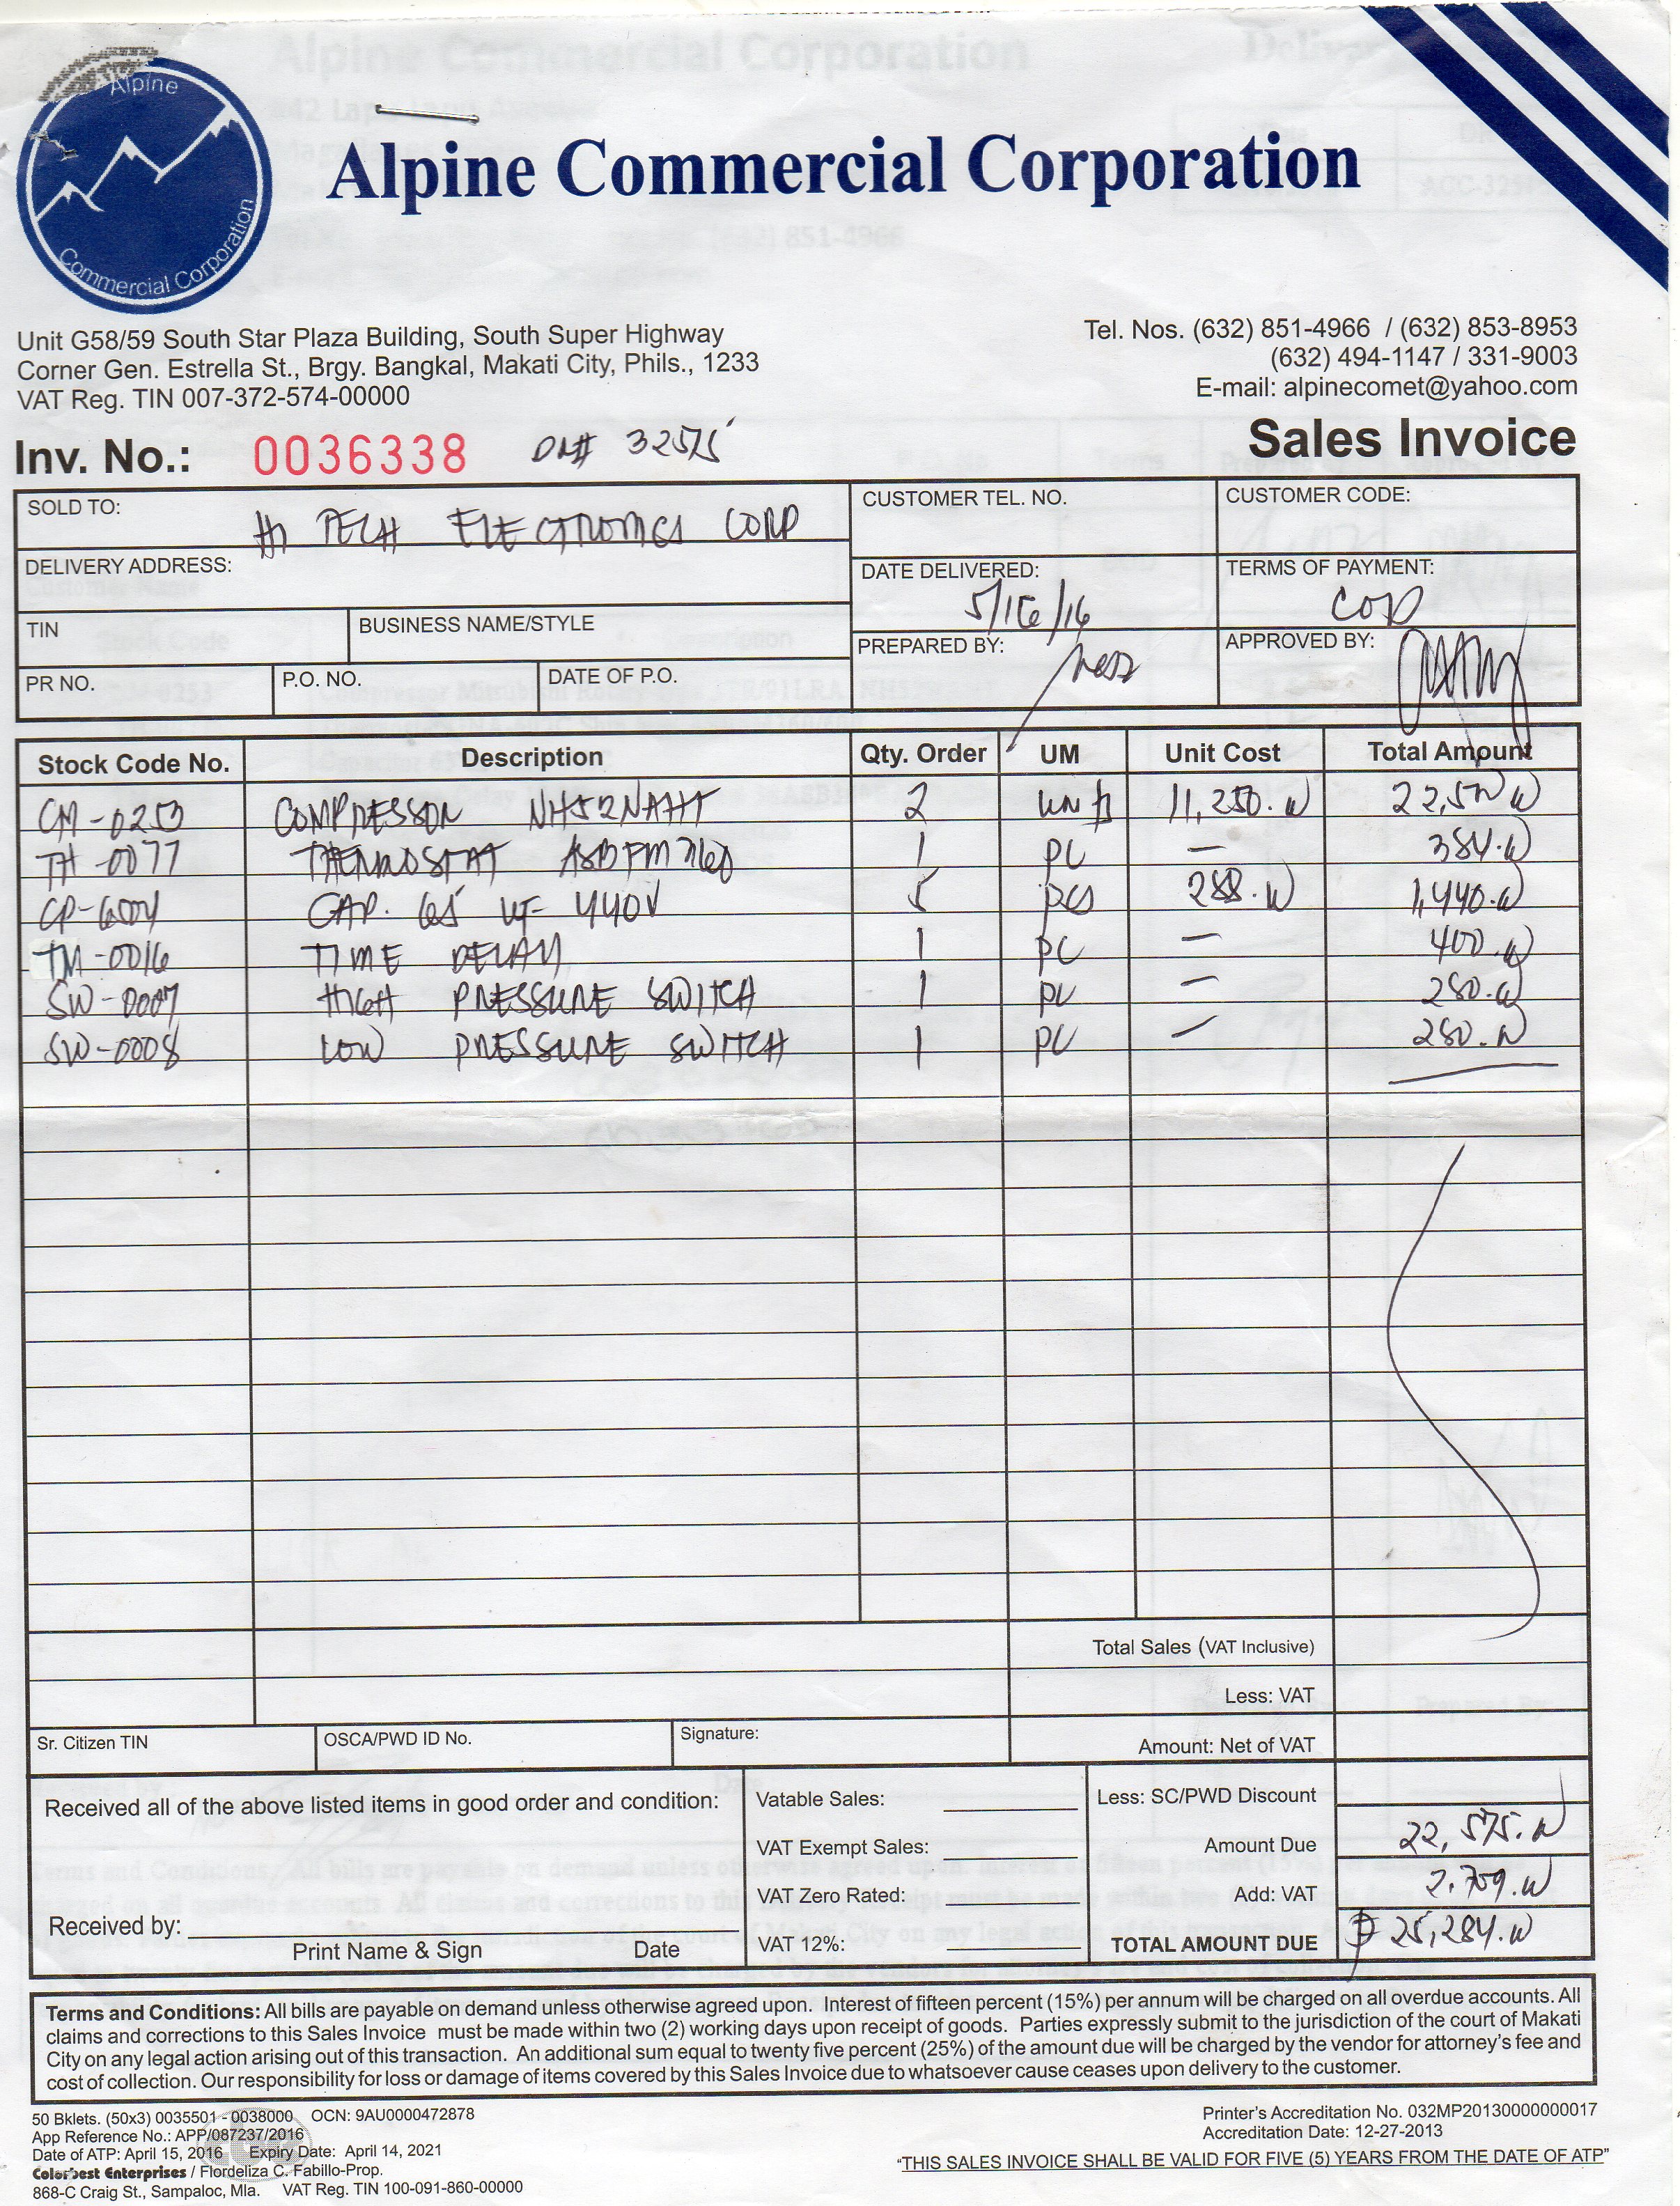 Alpine
Commercial Corporation
Alpine Commercial Corporation
Unit G58/59 South Star Plaza Building, South Super Highway
Corner Gen. Estrella St., Brgy. Bangkal, Makati City, Phils., 1233
VAT Reg. TIN 007-372-574-00000
Tel. Nos. (632) 851-4966 / (632) 853-8953
(632) 494-1147 / 331-9003
E-mail: alpinecomet@yahoo.com
Inv. No.: 0036338 DR# 32515
Sales Invoice
SOLD TO: HI TECH ELECTRONICS CORP
CUSTOMER TEL. NO.
CUSTOMER CODE:
DELIVERY ADDRESS:
DATE DELIVERED: 5/16/16
TERMS OF PAYMENT: COD
TIN
BUSINESS NAME/STYLE
PREPARED BY:
APPROVED BY:
PR NO.
P.O. NO.
DATE OF P.O.
Stock Code No. Description Qty. Order UM Unit Cost Total Amount
CM-0253 COMPRESSOR NH52NAHT 2 units 11,250.00 22,500.00
TH-0077 THERMOSTAT 1 PC — 384.00
CP-6004 CAP. 65 UF 440V 5 PCS 288.00 1,440.00
TM-0016 TIME DELAY 1 PC — 400.00
SW-0007 HIGH PRESSURE SWITCH 1 PC — 280.00
SW-0008 LOW PRESSURE SWITCH 1 PC — 280.00
Total Sales (VAT Inclusive)
Less: VAT
Sr. Citizen TIN
OSCA/PWD ID No.
Signature:
Amount: Net of VAT
Received all of the above listed items in good order and condition:
Vatable Sales:
Less: SC/PWD Discount
VAT Exempt Sales:
Amount Due 22,575.00
VAT Zero Rated:
Add: VAT 2,709.00
Received by:
Print Name & Sign Date
VAT 12%:
TOTAL AMOUNT DUE ₱ 25,284.00
Terms and Conditions: All bills are payable on demand unless otherwise agreed upon. Interest of fifteen percent (15%) per annum will be charged on all overdue accounts. All
claims and corrections to this Sales Invoice must be made within two (2) working days upon receipt of goods. Parties expressly submit to the jurisdiction of the court of Makati
City on any legal action arising out of this transaction. An additional sum equal to twenty five percent (25%) of the amount due will be charged by the vendor for attorney's fee and
cost of collection. Our responsibility for loss or damage of items covered by this Sales Invoice due to whatsoever cause ceases upon delivery to the customer.
50 Bklets. (50x3) 0035501 - 0038000 OCN: 9AU0000472878
App Reference No.: APP/087237/2016
Date of ATP: April 15, 2016 Expiry Date: April 14, 2021
Colorbest Enterprises / Flordeliza C. Fabillo-Prop.
868-C Craig St., Sampaloc, Mla. VAT Reg. TIN 100-091-860-00000
Printer's Accreditation No. 032MP20130000000017
Accreditation Date: 12-27-2013
"THIS SALES INVOICE SHALL BE VALID FOR FIVE (5) YEARS FROM THE DATE OF ATP"